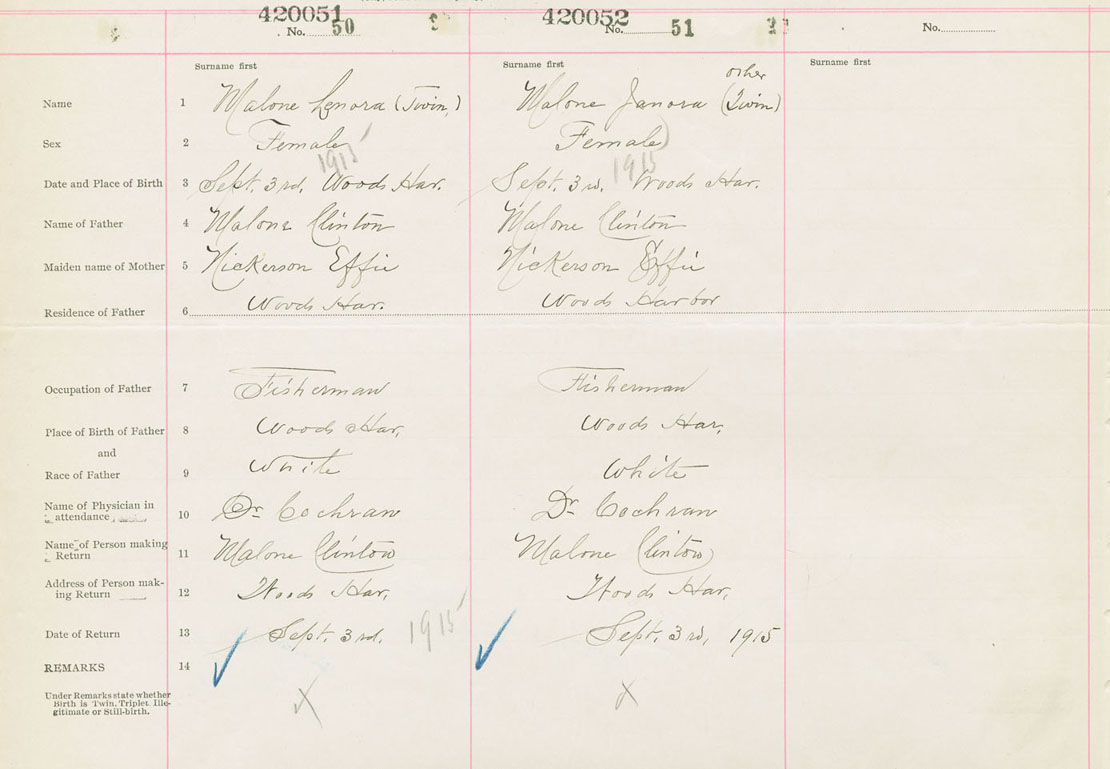 420051 420052
No. 50 No. 51 No.
Surname first Surname first Surname first
other
Name 1 Malone Lenora (Twin) Malone Janora (Twin)
Sex 2 Female Female
1915 1915
Date and Place of Birth 3 Sept. 3rd, Woods Har. Sept. 3rd, Woods Har.
Name of Father 4 Malone Clinton Malone Clinton
Maiden name of Mother 5 Nickerson Effie Nickerson Effie
Residence of Father 6 Woods Har. Woods Harbor
Occupation of Father 7 Fisherman Fisherman
Place of Birth of Father 8 Woods Har. Woods Har.
and
Race of Father 9 White White
Name of Physician in
attendance 10 Dr Cochran Dr Cochran
Name of Person making
Return 11 Malone Clinton Malone Clinton
Address of Person mak-
ing Return 12 Woods Har. Woods Har.
Date of Return 13 Sept. 3rd, 1915 Sept. 3rd, 1915
REMARKS 14
Under Remarks state whether
Birth is Twin, Triplet, Ille-
gitimate or Still-birth.
X X